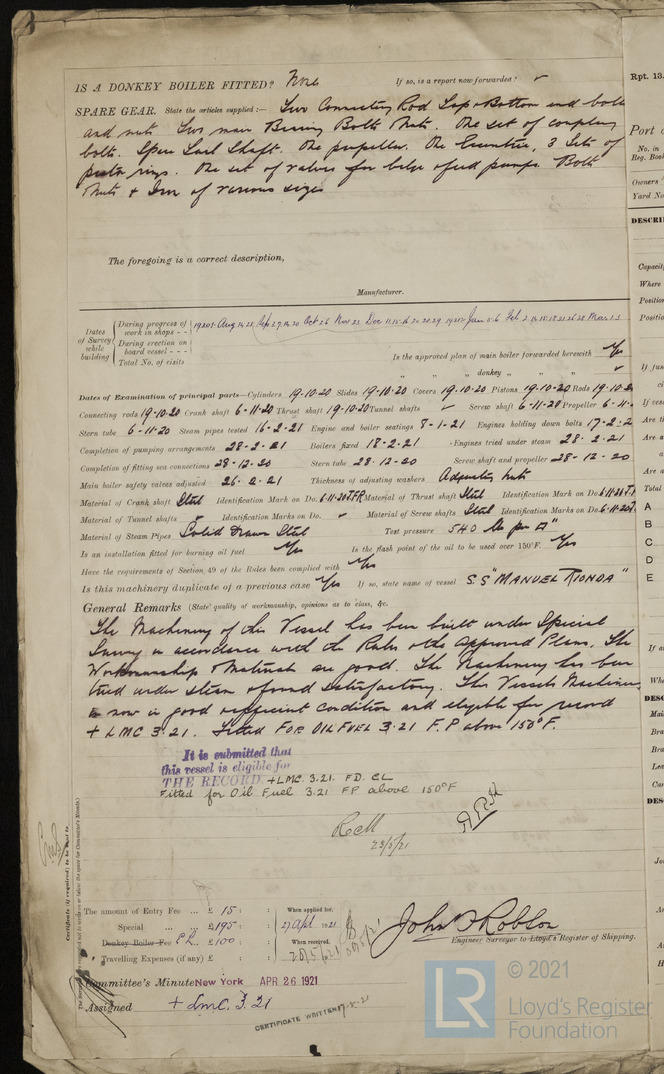 IS A DONKEY BOILER FITTED? None If so, is a report now forwarded? ✓
SPARE GEAR. State the articles supplied :— Two Connecting Rod Top & Bottom end bolts
and nuts Two main Bearing Bolts & Nuts. One set of coupling
bolts. Spare Tail Shaft. One propeller. One Eccentric, 3 Sets of
piston rings. One set of valves for bilge & feed pumps. Bolts
Nuts & Iron of various sizes
The foregoing is a correct description,
Manufacturer.
Dates of Survey while building
During progress of work in shops - - 1920: Aug 14.28, Sep 27.14.20 Oct 26 Nov 23 Dec 11.15.16 20.20.29 1921: Jan 5.6 Feb 2.14.15.18.21.26.28 Mar 1.3
During erection on board vessel - - -
Total No. of visits
Is the approved plan of main boiler forwarded herewith Yes
" " " donkey " " " ✓
Dates of Examination of principal parts—Cylinders 19-10-20 Slides 19-10-20 Covers 19-10-20 Pistons 19-10-20 Rods 19-10-2
Connecting rods 19-10-20 Crank shaft 6-11-20 Thrust shaft 19-10-20 Tunnel shafts ✓ Screw shaft 6-11-20 Propeller 6-11-
Stern tube 6-11-20 Steam pipes tested 16-2-21 Engine and boiler seatings 8-1-21 Engines holding down bolts 17-2-2
Completion of pumping arrangements 28-2-21 Boilers fixed 18-2-21 Engines tried under steam 28-2-21
Completion of fitting sea connections 28-12-20 Stern tube 28-12-20 Screw shaft and propeller 28-12-20
Main boiler safety valves adjusted 26-2-21 Thickness of adjusting washers Adjusting Nuts
Material of Crank shaft Steel Identification Mark on Do. 6.11.20 J.F.R Material of Thrust shaft Steel Identification Mark on Do. 6.11.20
Material of Tunnel shafts ✓ Identification Marks on Do. ✓ Material of Screw shafts Steel Identification Marks on Do. 6.11.20
Material of Steam Pipes Solid Drawn Steel Test pressure 540 lbs per □"
Is an installation fitted for burning oil fuel Yes Is the flash point of the oil to be used over 150°F. Yes
Have the requirements of Section 49 of the Rules been complied with Yes
Is this machinery duplicate of a previous case Yes If so, state name of vessel S.S "MANUEL RIONDA"
General Remarks (State quality of workmanship, opinions as to class, &c.
The Machinery of this Vessel has been built under Special
Survey in accordance with the Rules & the Approved Plans. The
Workmanship & Materials are good. The Machinery has been
tried under steam & found satisfactory. This Vessels Machinery
is now in good & efficient condition and eligible for record
+ LMC 3.21. Fitted FOR OIL FUEL 3.21 F.P above 150°F.
It is submitted that
this vessel is eligible for
THE RECORD +LMC. 3.21. FD. CL
Fitted for Oil Fuel 3.21 FP above 150°F
23/5/21
Certificate (if required) to be sent to
The amount of Entry Fee ... £ 15 : :
Special ... £ 195 : :
Donkey Boiler Fee £ 100 : :
Travelling Expenses (if any) £ : :
When applied for, 27 Apl 1921
When received,
John F Robson
Engineer Surveyor to Lloyd's Register of Shipping.
Committee's Minute New York APR 26 1921
Assigned + LMC. 3.21
CERTIFICATE WRITTEN
© 2021
Lloyd's Register
Foundation
Rpt. 13.
Port o
No. in
Reg. Book
Owners
Yard No
DESCRI
Capacity
Where
Position
Positio
If fun
If vess
Are th
Are a
Are a
Total
A
B
C
D
E
If a
Whe
DESC
Mai
Bra
Bra
Leng
Car
DES